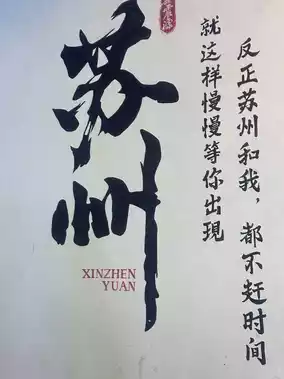 反正苏州和我，都不赶时间
就这样慢慢等你出現
苏州
XINZHEN
YUAN